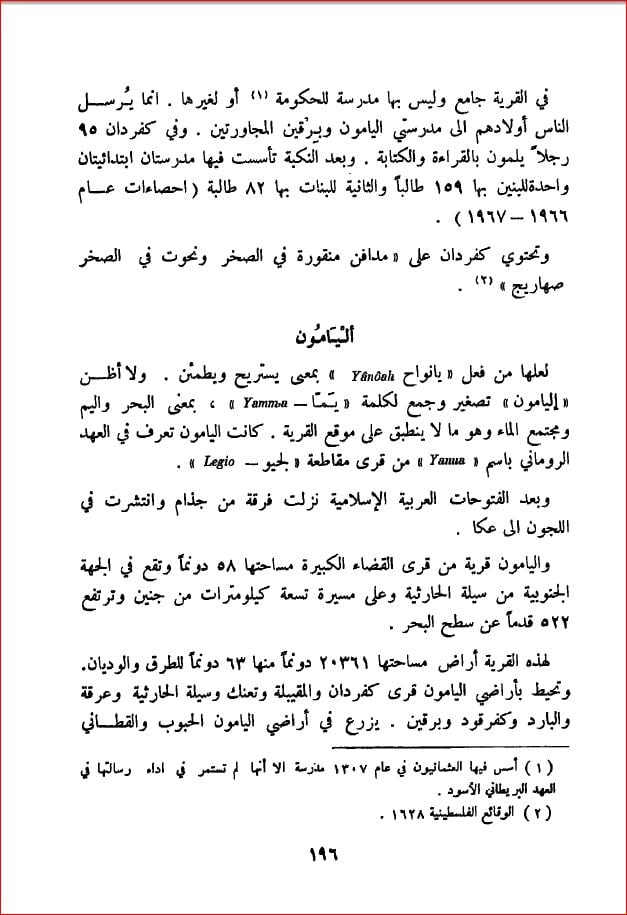 في القرية جامع وليس بها مدرسة للحكومة (١) أو لغيرها . انما يُرســل
الناس أولادهم الى مدرستي اليامون وبِرْقين المجاورتين . وفي كفردان ٩٥
رجلاً يلمون بالقراءة والكتابة . وبعد النكبة تأسست فيها مدرستان ابتدائيتان
واحدةللبنين بها ١٥٩ طالباً والثانية للبنات بها ٨٢ طالبة ( احصاءات عــام
١٩٦٦ – ١٩٦٧ ) .
وتحتوي كفردان على « مدافن منقورة في الصخر ونحوت في الصخر
صهاريج » (٢) .
أليَامُون
لعلها من فعل « يانواح Yânôah » بمعنى يستريح ويطمئن . ولا أظــن
« إليامون » تصغير وجمع لكلمة « يَـمّـا – Yamma » ، بمعنى البحر واليم
ومجتمع الماء وهو ما لا ينطبق على موقع القرية . كانت اليامون تعرف في العهد
الروماني باسم « Yanua » من قرى مقاطعة « لجيو – Legio » .
وبعد الفتوحات العربية الإسلامية نزلت فرقة من جذام وانتشرت في
اللجون الى عكا .
واليامون قرية من قرى القضاء الكبيرة مساحتها ٥٨ دونماً وتقع في الجهة
الجنوبية من سيلة الحارثية وعلى مسيرة تسعة كيلومترات من جنين وترتفع
٥٢٢ قدماً عن سطح البحر .
لهذه القرية أراض مساحتها ٢٠٣٦١ دونماً منها ٦٣ دونماً للطرق والوديان.
وتحيط بأراضي اليامون قرى كفردان والمقيبلة وتعنك وسيلة الحارثية وعرقة
والبارد وكفرقود وبرقين . يزرع في أراضي اليامون الحبوب والقطــاني
( ١ ) أسس فيها العثمانيون في عام ١٣٠٧ مدرسة الا أنها لم تستمر في اداء رسالتها في
العهد البريطاني الأسود .
( ٢ ) الوقائع الفلسطينية ١٦٢٨ .
١٩٦